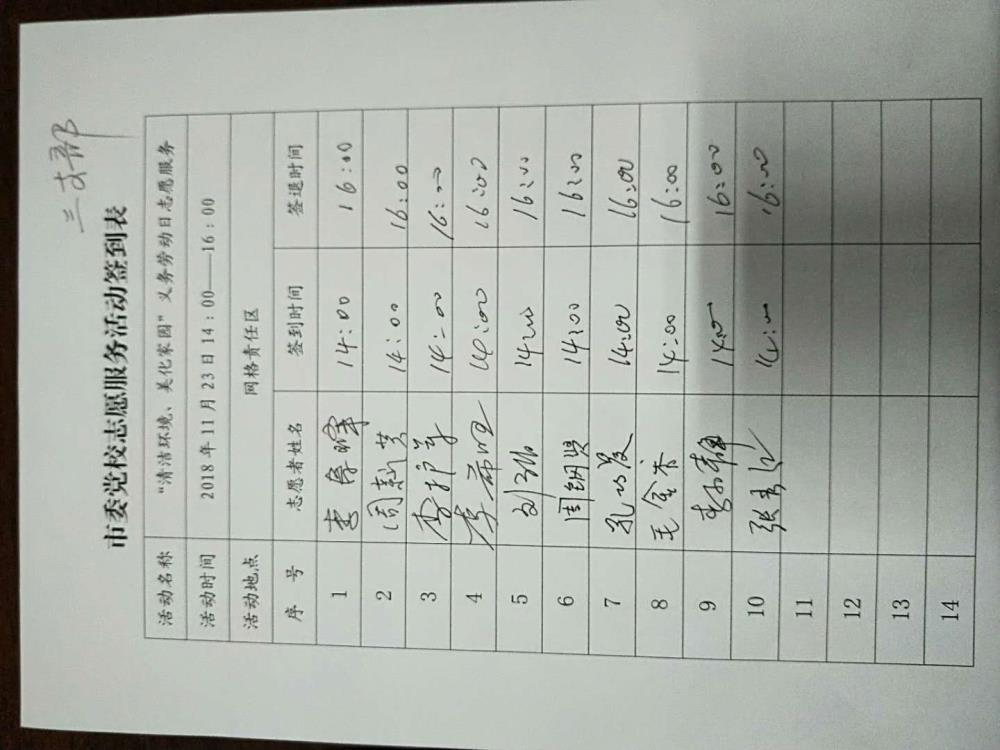 三支部
市委党校志愿服务活动签到表
活动名称 “清洁环境、美化家园”义务劳动日志愿服务
活动时间 2018年11月23日14:00——16:00
活动地点 网格责任区
序 号 志愿者姓名 签到时间 签退时间
1 14:00 16:00
2 14:00 16:00
3 14:00 16:00
4 14:00 16:00
5 14:00 16:00
6 14:00 16:00
7 14:00 16:00
8 王金齐 14:00 16:00
9 14:00 16:00
10 14:00 16:00
11
12
13
14